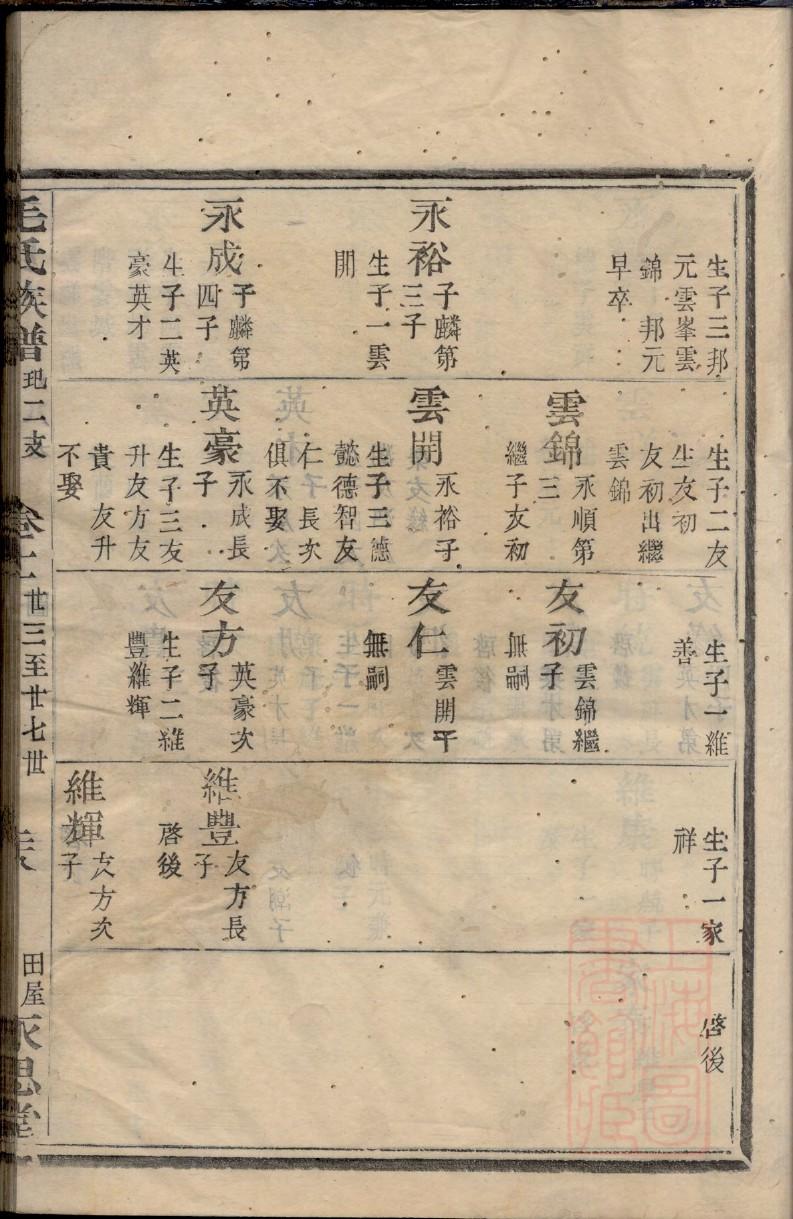 生子三邦
元雲峯雲
錦　邦元
早卒
永裕
子麟第
三子
生子一雲
開
永成
子麟第
四子
生子二英
豪英才
生子二友
生友初
友初出繼
雲錦
雲錦
永順第
三
繼子友初
雲開
永裕子
生子三德
懿德智友
仁　長次
俱不娶
英豪
永成長
子
生子三友
升友方友
貴　友升
不娶
生子一維
善
友初
雲錦繼
子
無嗣
友仁
雲開平
無嗣
友方
英豪次
子
生子二維
豐維輝
生子一家
祥
維豐
友方長
子
啓後
維輝
友方次
子
啓後
毛氏族譜
玘二支
卷十二
廿三至廿七世
田屋
永思堂
上海圖書館藏